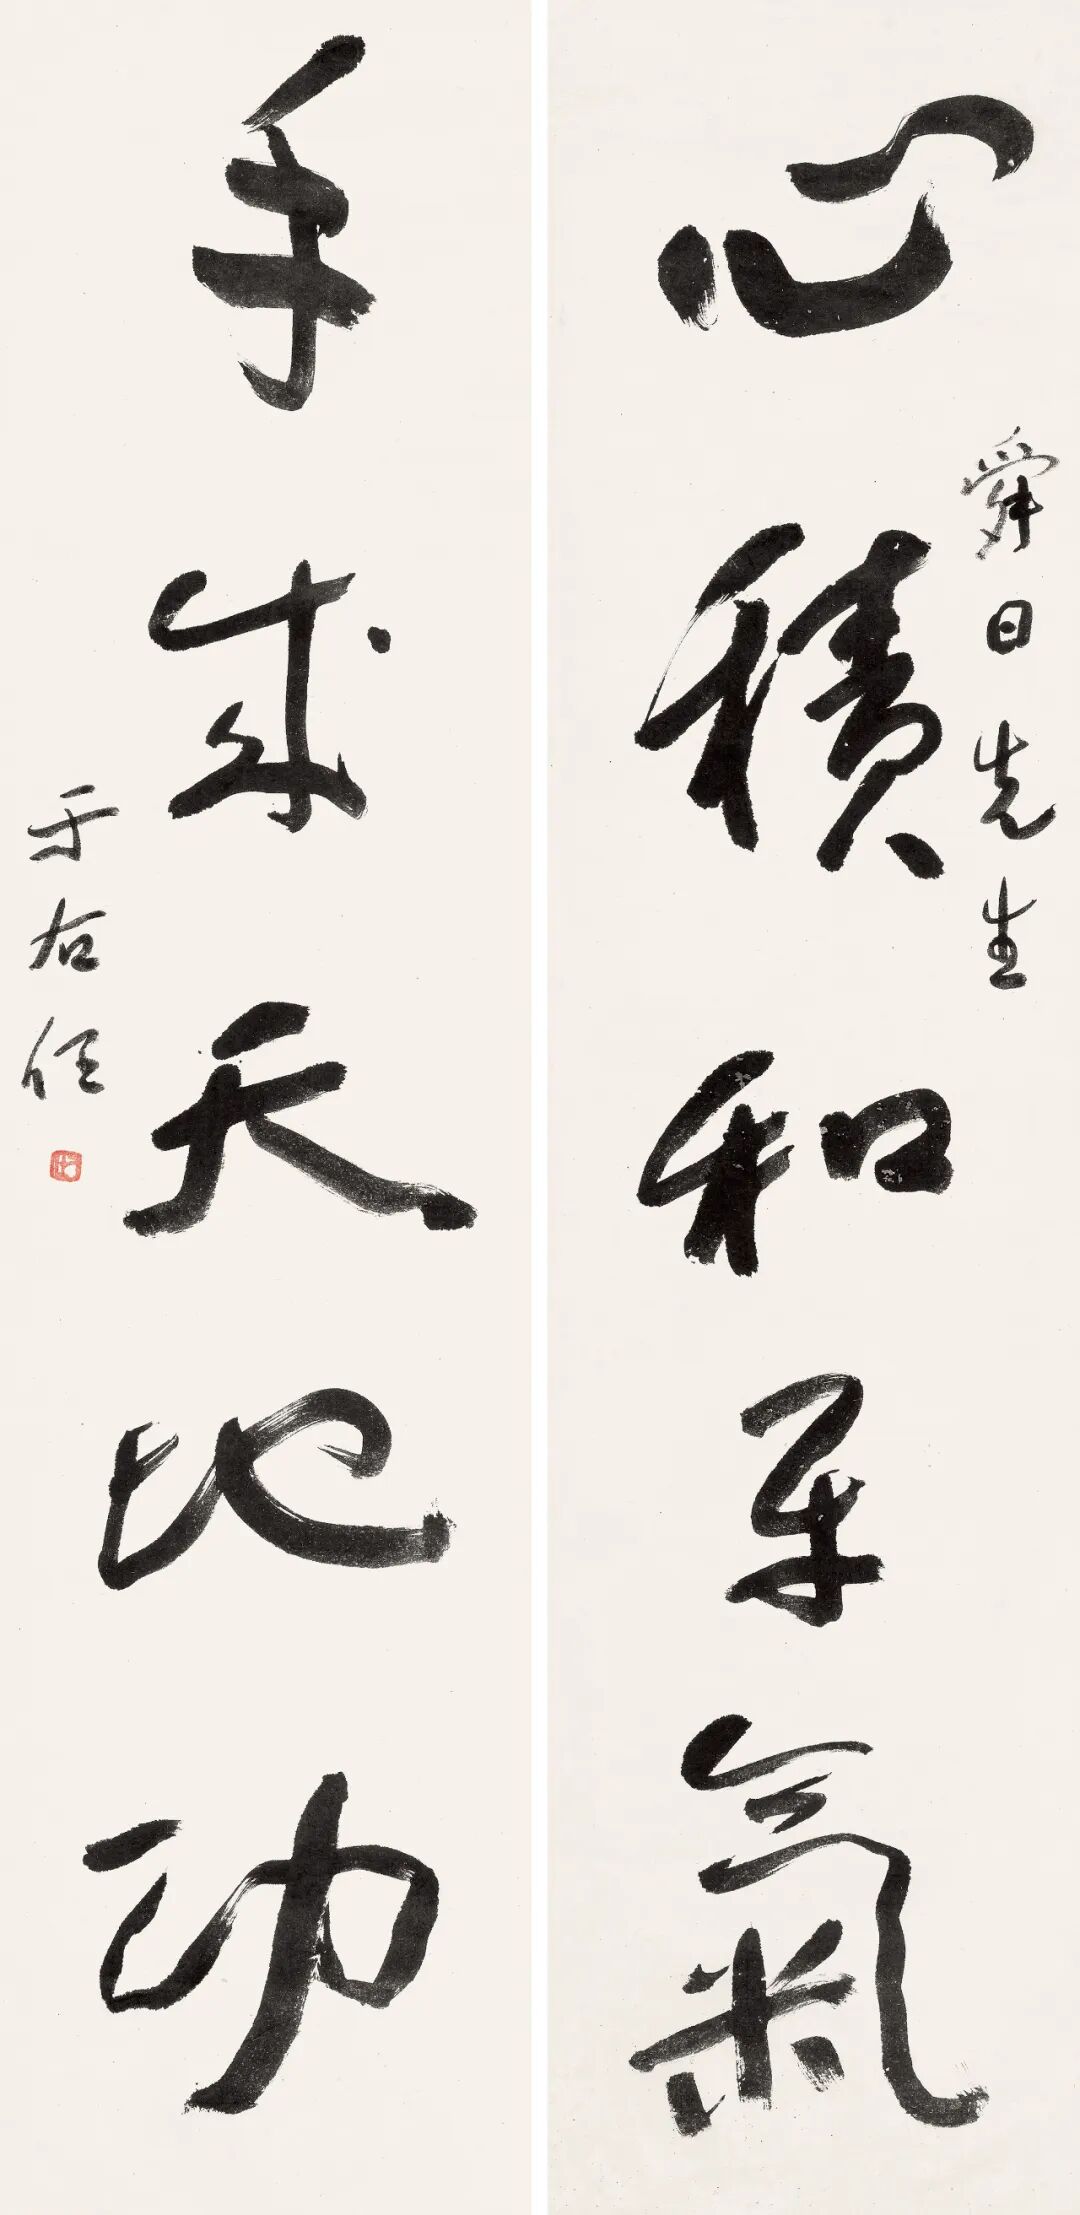 心積和平氣
舜日先生
手成天地功
于右任